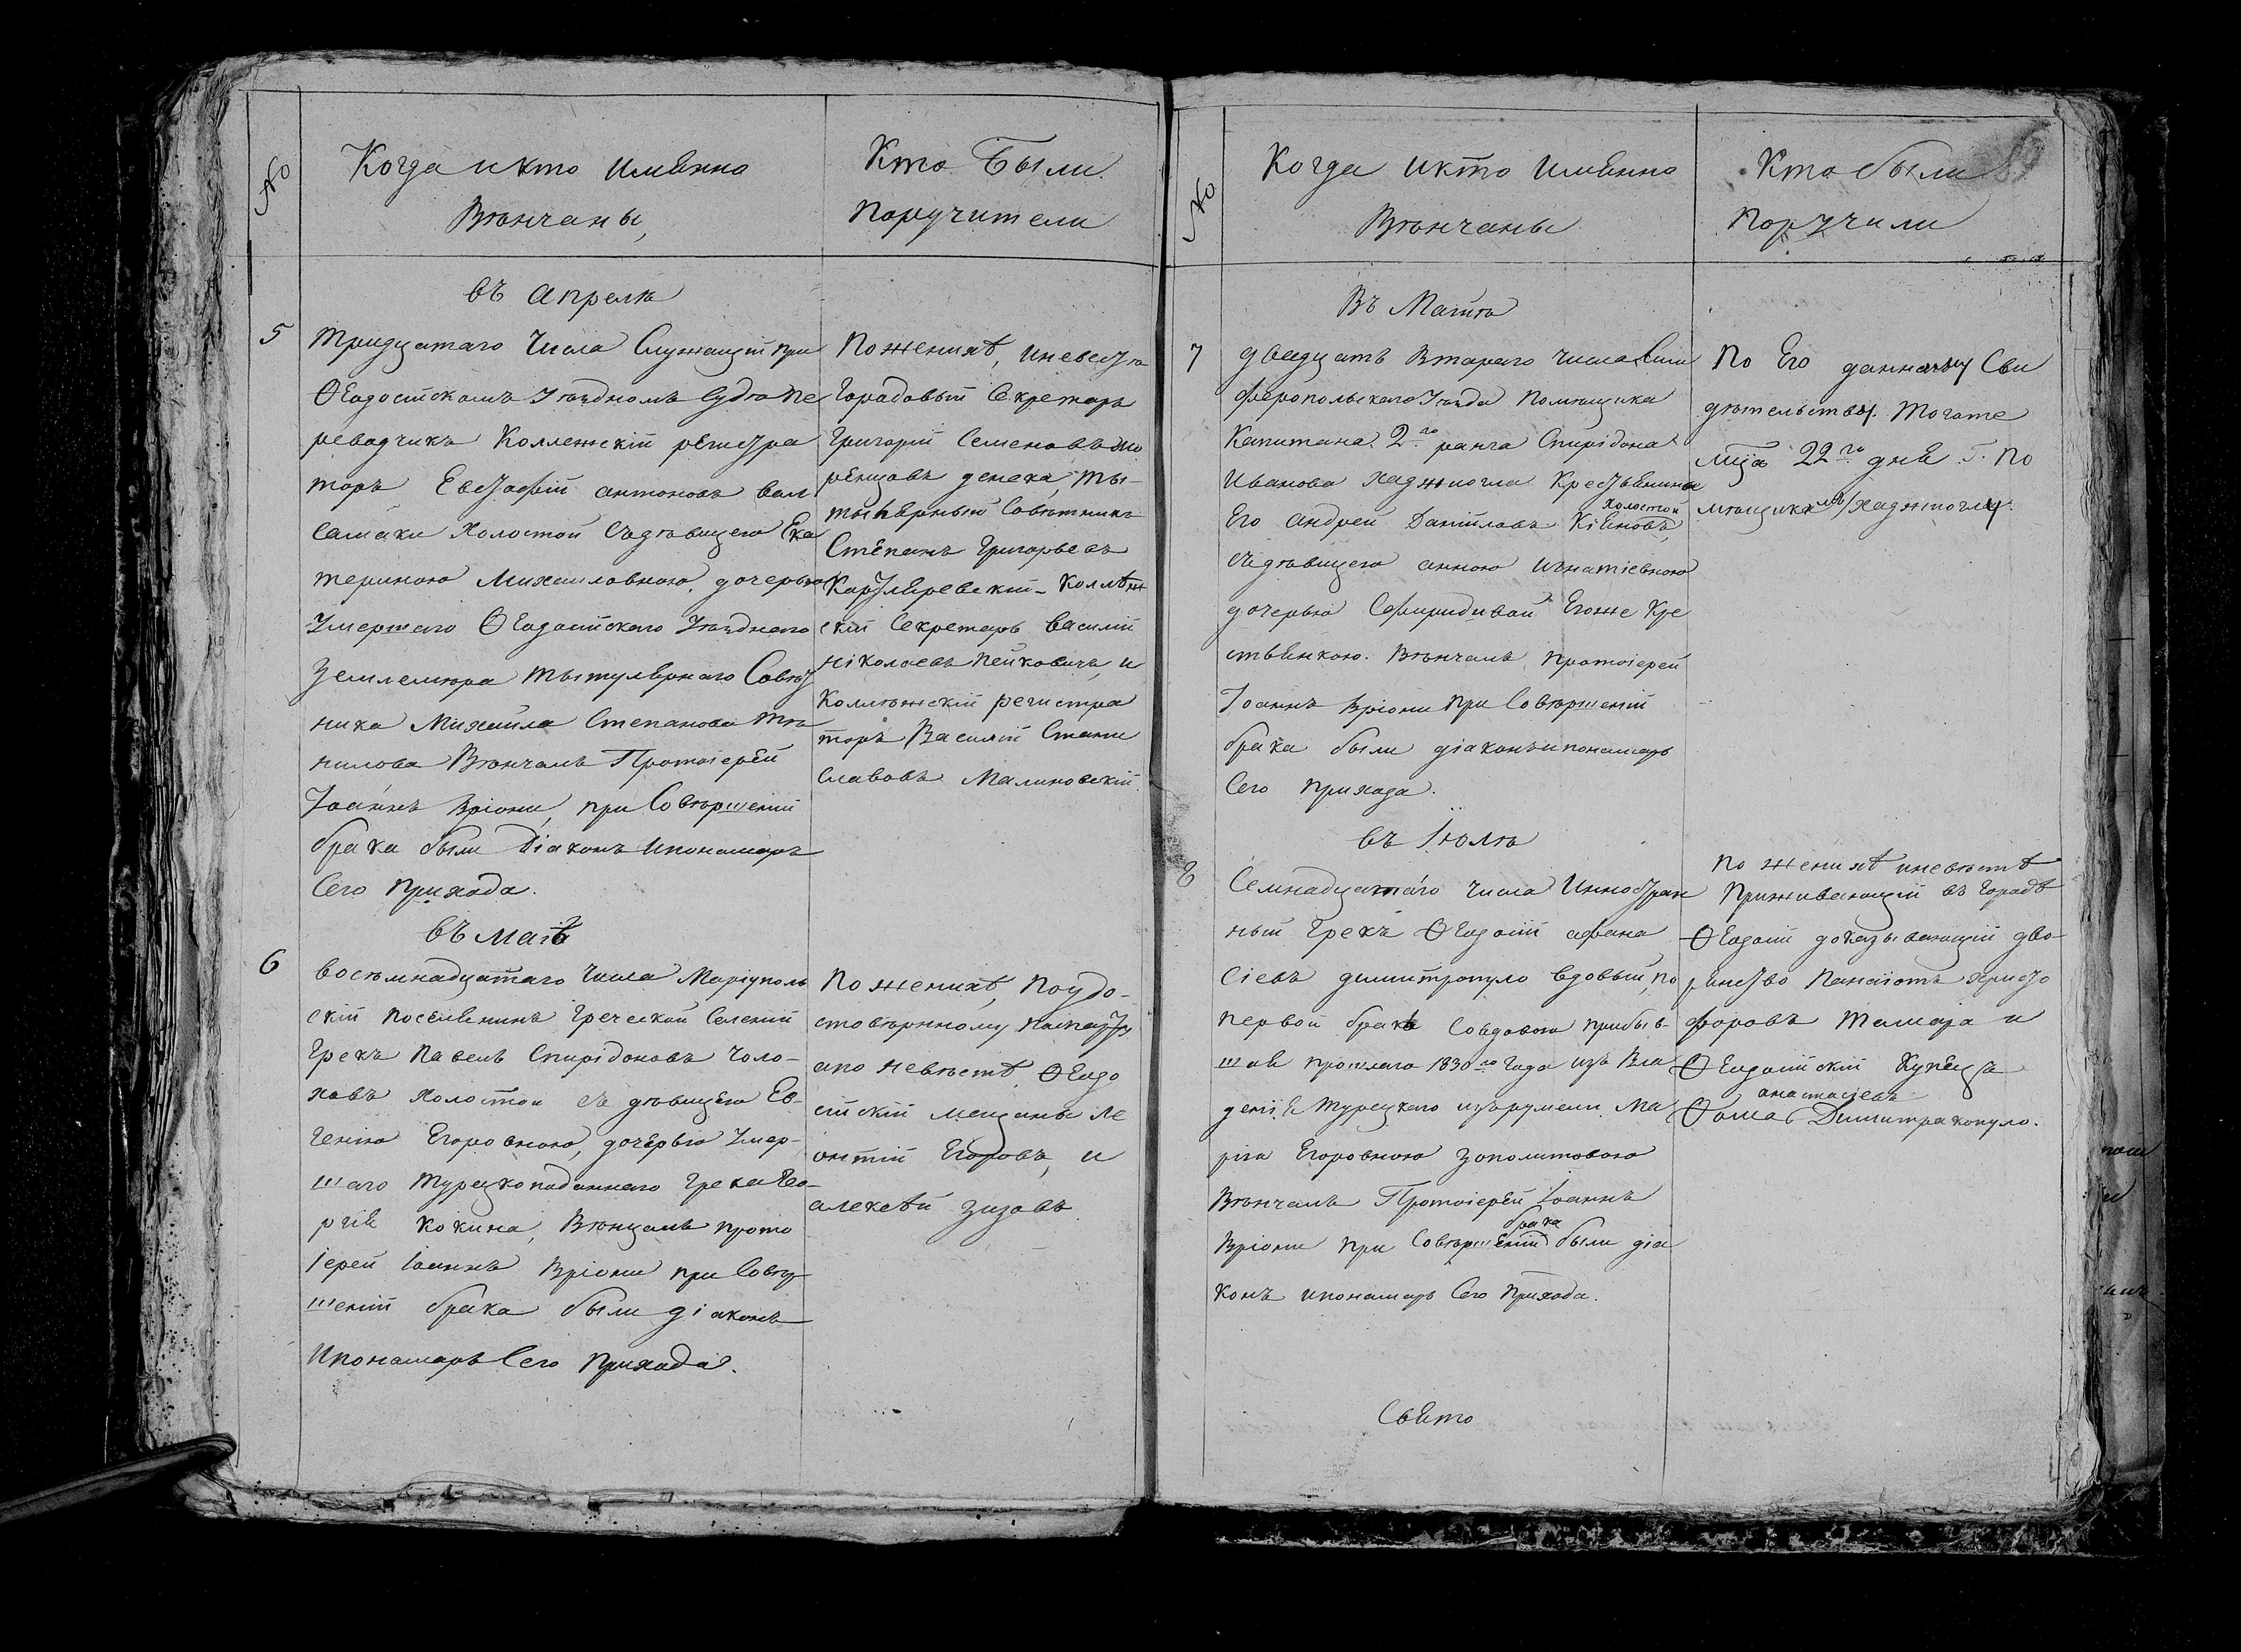 №
Когда и кто имѣнно
Вѣнчаны,
Кто Были
поручители
въ апрелѣ
5
тридцатаго Числа Служащій при
Ѳеодосійскомъ Уѣздномъ Судѣ пе
реводчикъ Коллежскій регистра
торъ Евстафій антоновъ вал
самаки Холостой съ дѣвицею Ека
териною Михаиловною, дочерью
Умершаго Ѳеодосійскаго Уѣзднаго
Землемѣра тытулярнаго Совѣт
ника Михаила Степанова
нилова Вѣнчалъ Протоіерей
Іоаннъ Вріони, при Совѣршеніи
брака были Діаконъ и понамарь
Сего прихода.
По женихѣ, и невестѣ
Городовый Секретарь
Григорій Семеновъ
тытулярный Совѣтникъ
Степанъ Григорьевъ
Коллеж
скій Секретарь василій
ніколаевъ пейковичъ, и
Коллѣжскій регистра
торъ Василій Стани
славовъ Малиновскій.
въ маіѣ
6
восѣмнадцатаго Числа Маріуполь
скій поселянинъ Греческой Селеній
Грекъ павелъ Спирідоновъ Чоло-
ховъ холостой съ дѣвицею Ев-
геніею Егоровною, дочерью Умер-
шаго турецкоподаннаго Грека Гео-
ргія Кокина, Вѣнчалъ прото
іерей Іоаннъ Вріони при Совѣр-
шеніи брака были діаконъ
и понамарь Сего прихода.
По женихѣ, по удо-
стовѣренному паспорту
а по невѣстѣ, Ѳеодо
сійскій мещаны Ле
онтій Егоровъ, и
алексѣй зизовъ
№
Когда и кто имѣнно
Вѣнчаны
Кто были
поручили
Въ Маіѣ
7
двадцатъ втораго числа Сим
ферополскаго Уѣзда помѣщика
Капитана 2го ранга Спирідона
Иванова хаджиогла Крестьянинъ
холостой
Его андрей Даніиловъ Кіяновъ,
съ дѣвицею анною игнатіевною
дочерью Его же Кре
стьянкою. Вѣнчалъ протоіерей
Іоаннъ вріони при Совѣршеніи
брака были діаконъ и понамарь
Сего прихода.
По Его данному Сви
дѣтельству. того же
мца 22го дня Г. По
мѣщикамъ хаджиоглу.
въ Іюлѣ
8
Семнадцатаго числа Инностран
ный Грекъ Ѳеодосій афана
сіевъ димитропуло вдовый, по
первой бракѣ Совдовою прибыв-
шая прошлаго 1830го года изъ Вла
деніѣ турецкаго изъ румели Ма
ріа Егоровною
Вѣнчалъ Протоіерей Іоаннъ
брака
Вріони при Совѣршеніи были діа
конъ и понамарь Сего Прихода.
По женихѣ и невѣстѣ
Приживающій въ городѣ
Ѳеодосіи доказывающій дво-
рянство Панаіотъ христо
форовъ и
Ѳеодосійскій Купецъ
анастасіевъ
Ѳома Димитракопуло.
Свято